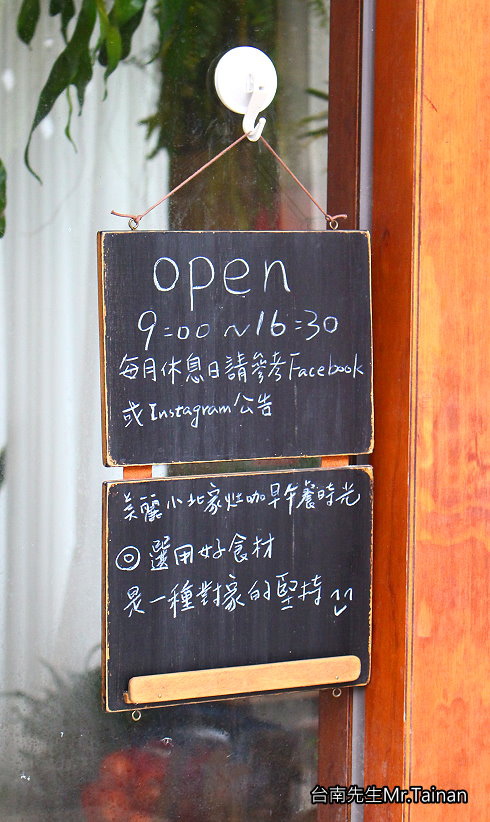 open
9:00~16:30
每月休息日請參考Facebook
或Instagram公告
美麗小北家灶咖早午餐時光
◎選用好食材
是一種對家的堅持
台南先生Mr.Tainan